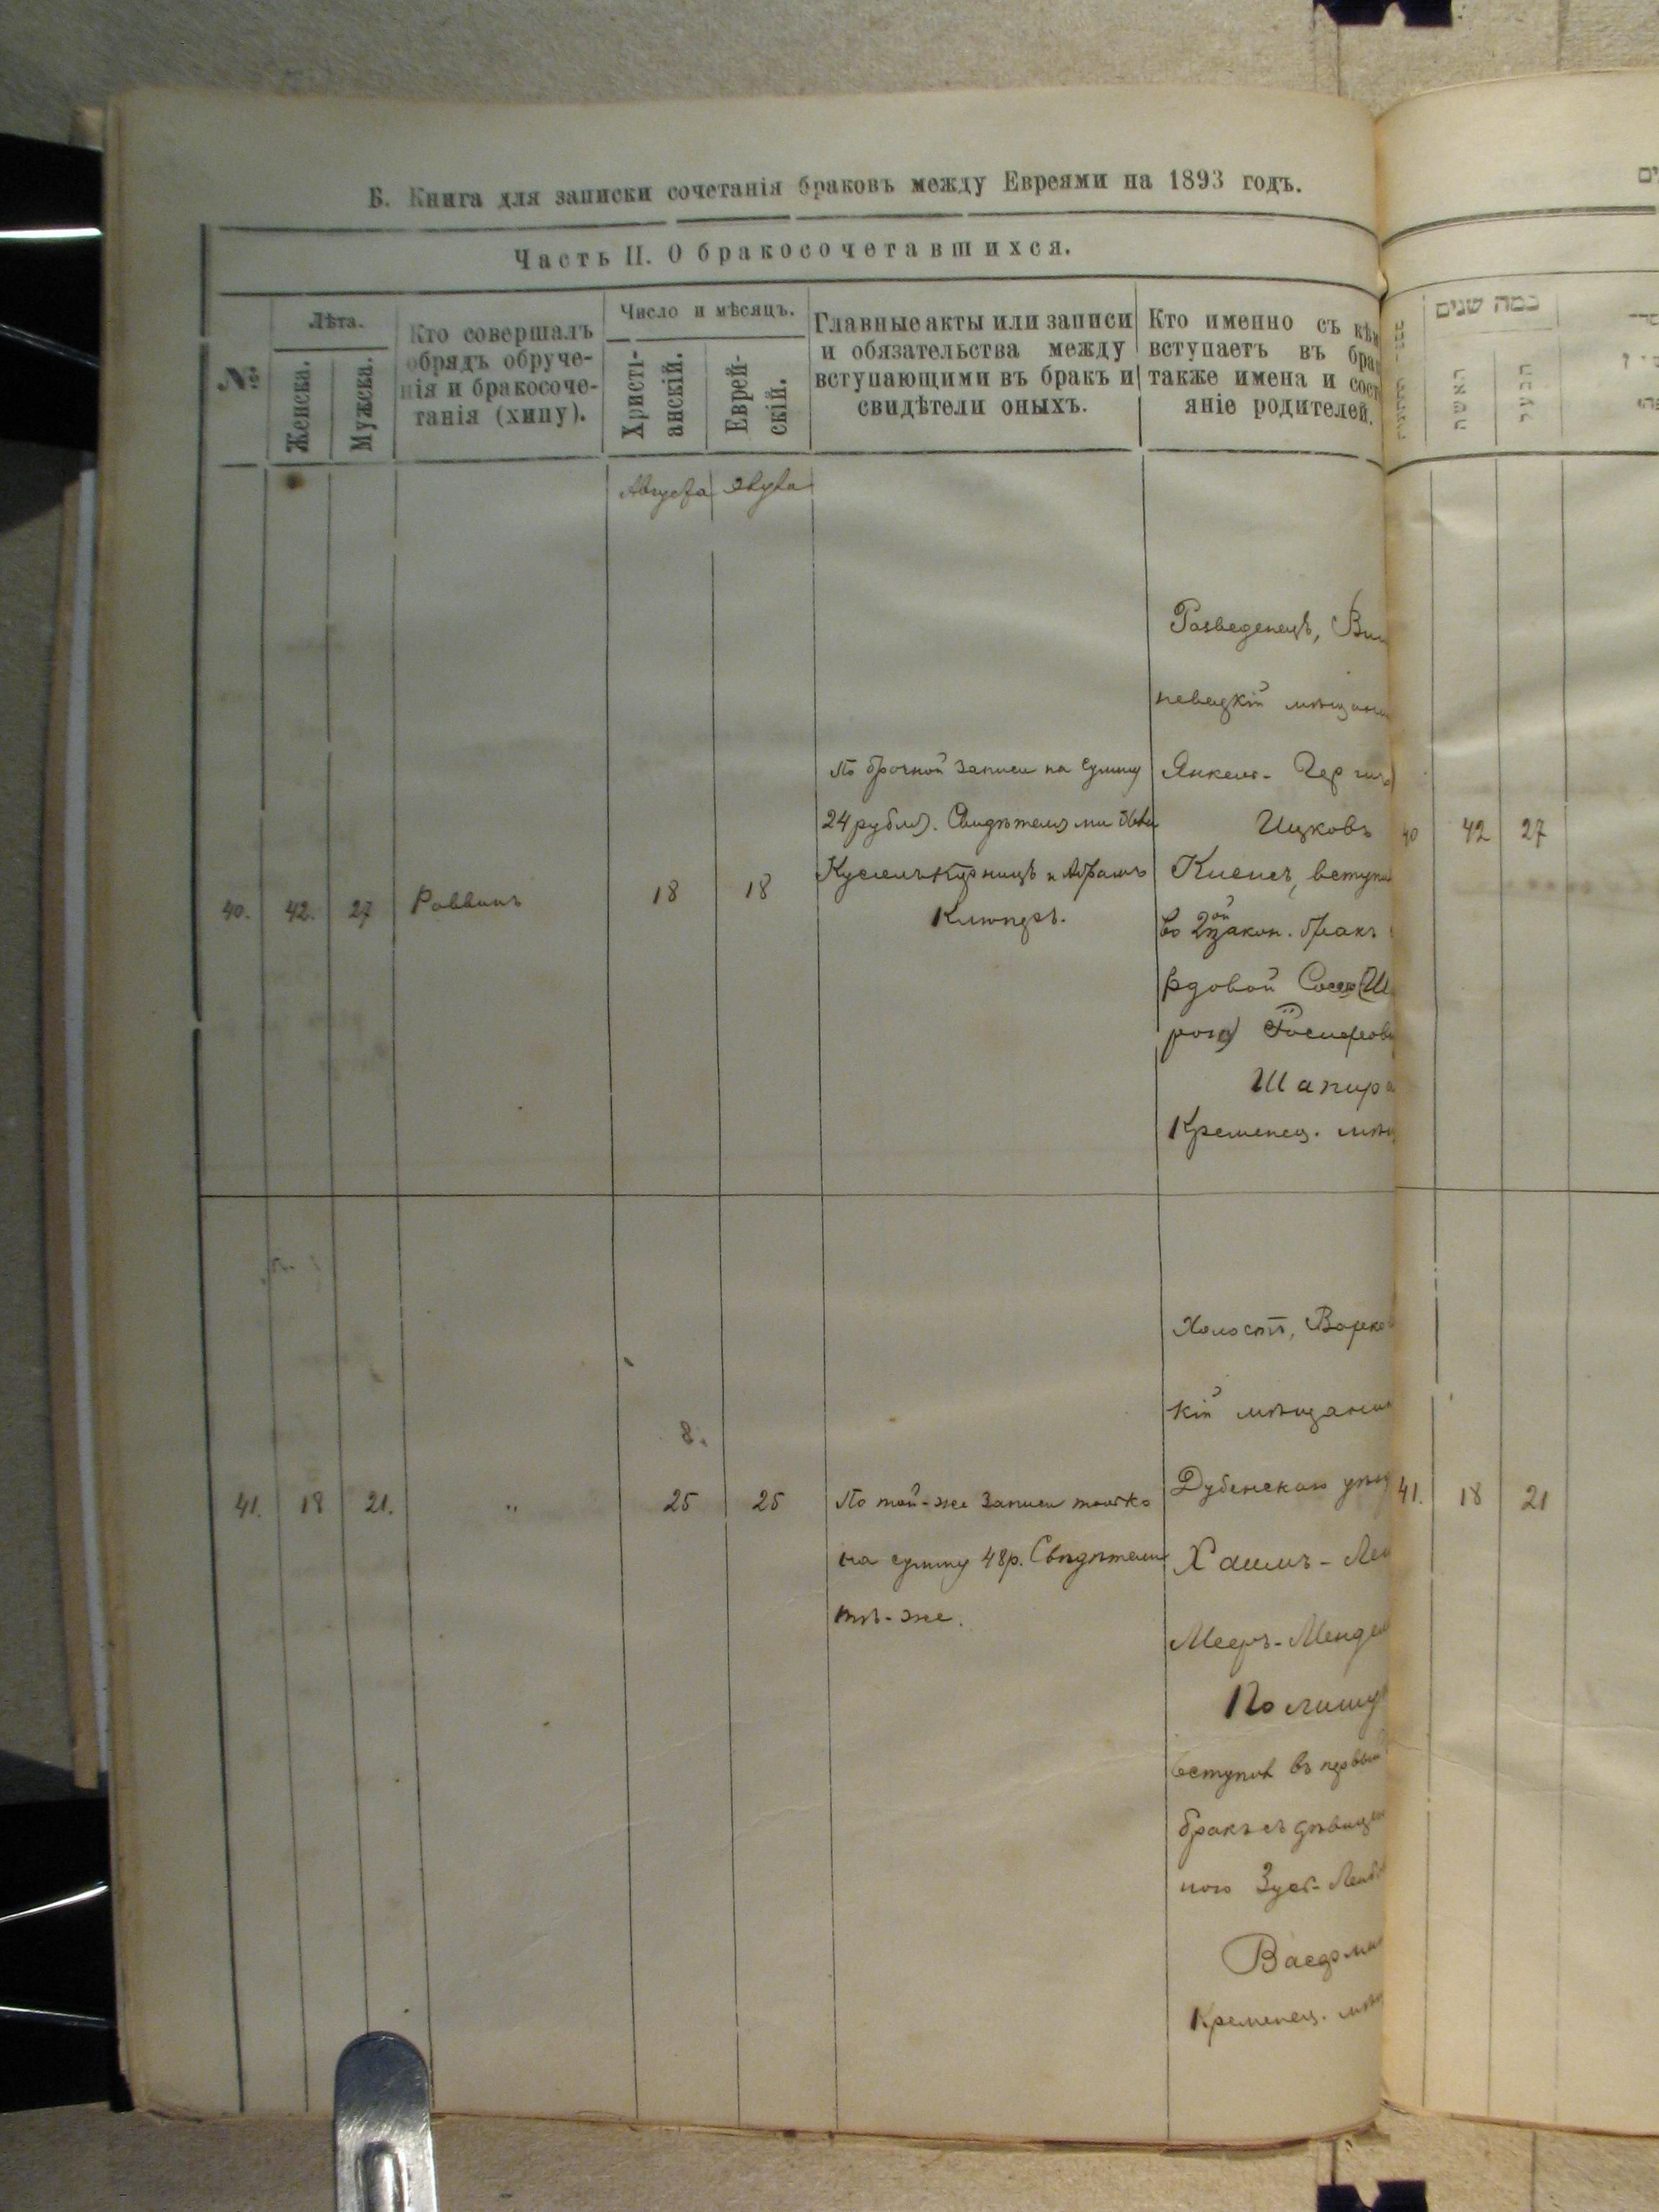 Б. Книга для записки сочетанія браковъ между Евреями на 1893 годъ.
Часть II. О бракосочетавшихся.
№
Лѣта.
Женска.
Мужска.
Кто совершалъ
обрядъ обруче-
нія и бракосоче-
танія (хипу).
Число и мѣсяцъ.
Христі-
анскій.
Еврей-
скій.
Главные акты или записи
и обязательства между
вступающими въ бракъ и
свидѣтели оныхъ.
Кто именно съ кѣм
вступаетъ въ бра
также имена и сост
яніе родителей.
Августа
40.
42.
27
Раввинъ
18
18
По брачной записи на сумму
24 рубля. Свидѣтелями
Кусель и Абрамъ
Разведенецъ, Виш
невецкій мѣщанин
Янкель-
Ицковъ
вступи
во 2ой закон. бракъ
вдовой
Шапира
Кременец. мѣщ
41.
18
21.
"
8.
25
25
По той-же записи только
на сумму 48р. Свѣдѣтели
тѣ-же.
Холостъ, Варко
кій мѣщанин
Дубенскаго уѣз
Хаимъ-Лей
Мееръ-Мендел
Полищу
вступил въ первый
бракъ съ дѣвицею
Кременец. мѣщ
כמה שנים
40
42
27
41.
18
21